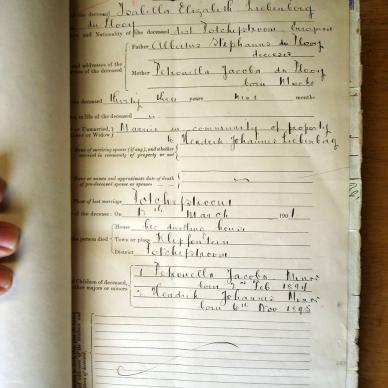 the deceased Isabella Elizabeth Liebenberg
du Plooy
and Nationality of the deceased dist Potchefstroom European
Father Albertus Stephanus du Plooy
deceased
and addresses of the
parents of the deceased
Mother Petronella Jacoba du Plooy
born
the deceased Thirty three years nine months
in life of the deceased
or Unmarried, Married in community of property
or Widow) to Hendrik Johannes Liebenberg
Name of surviving spouse (if any), and whether
married in community of property or not
Name or names and approximate date of death
of pre-deceased spouse or spouses
Place of last marriage Potchefstroom
of the decease: On March 1901
House her dwelling house
the person died Town or place Klipfontein
District Potchefstroom
Children of deceased,
majors or minors
1 Petronella Jacoba Minor
born Feb
2 Hendrik Johannes Minor
born 6th Nov 1895